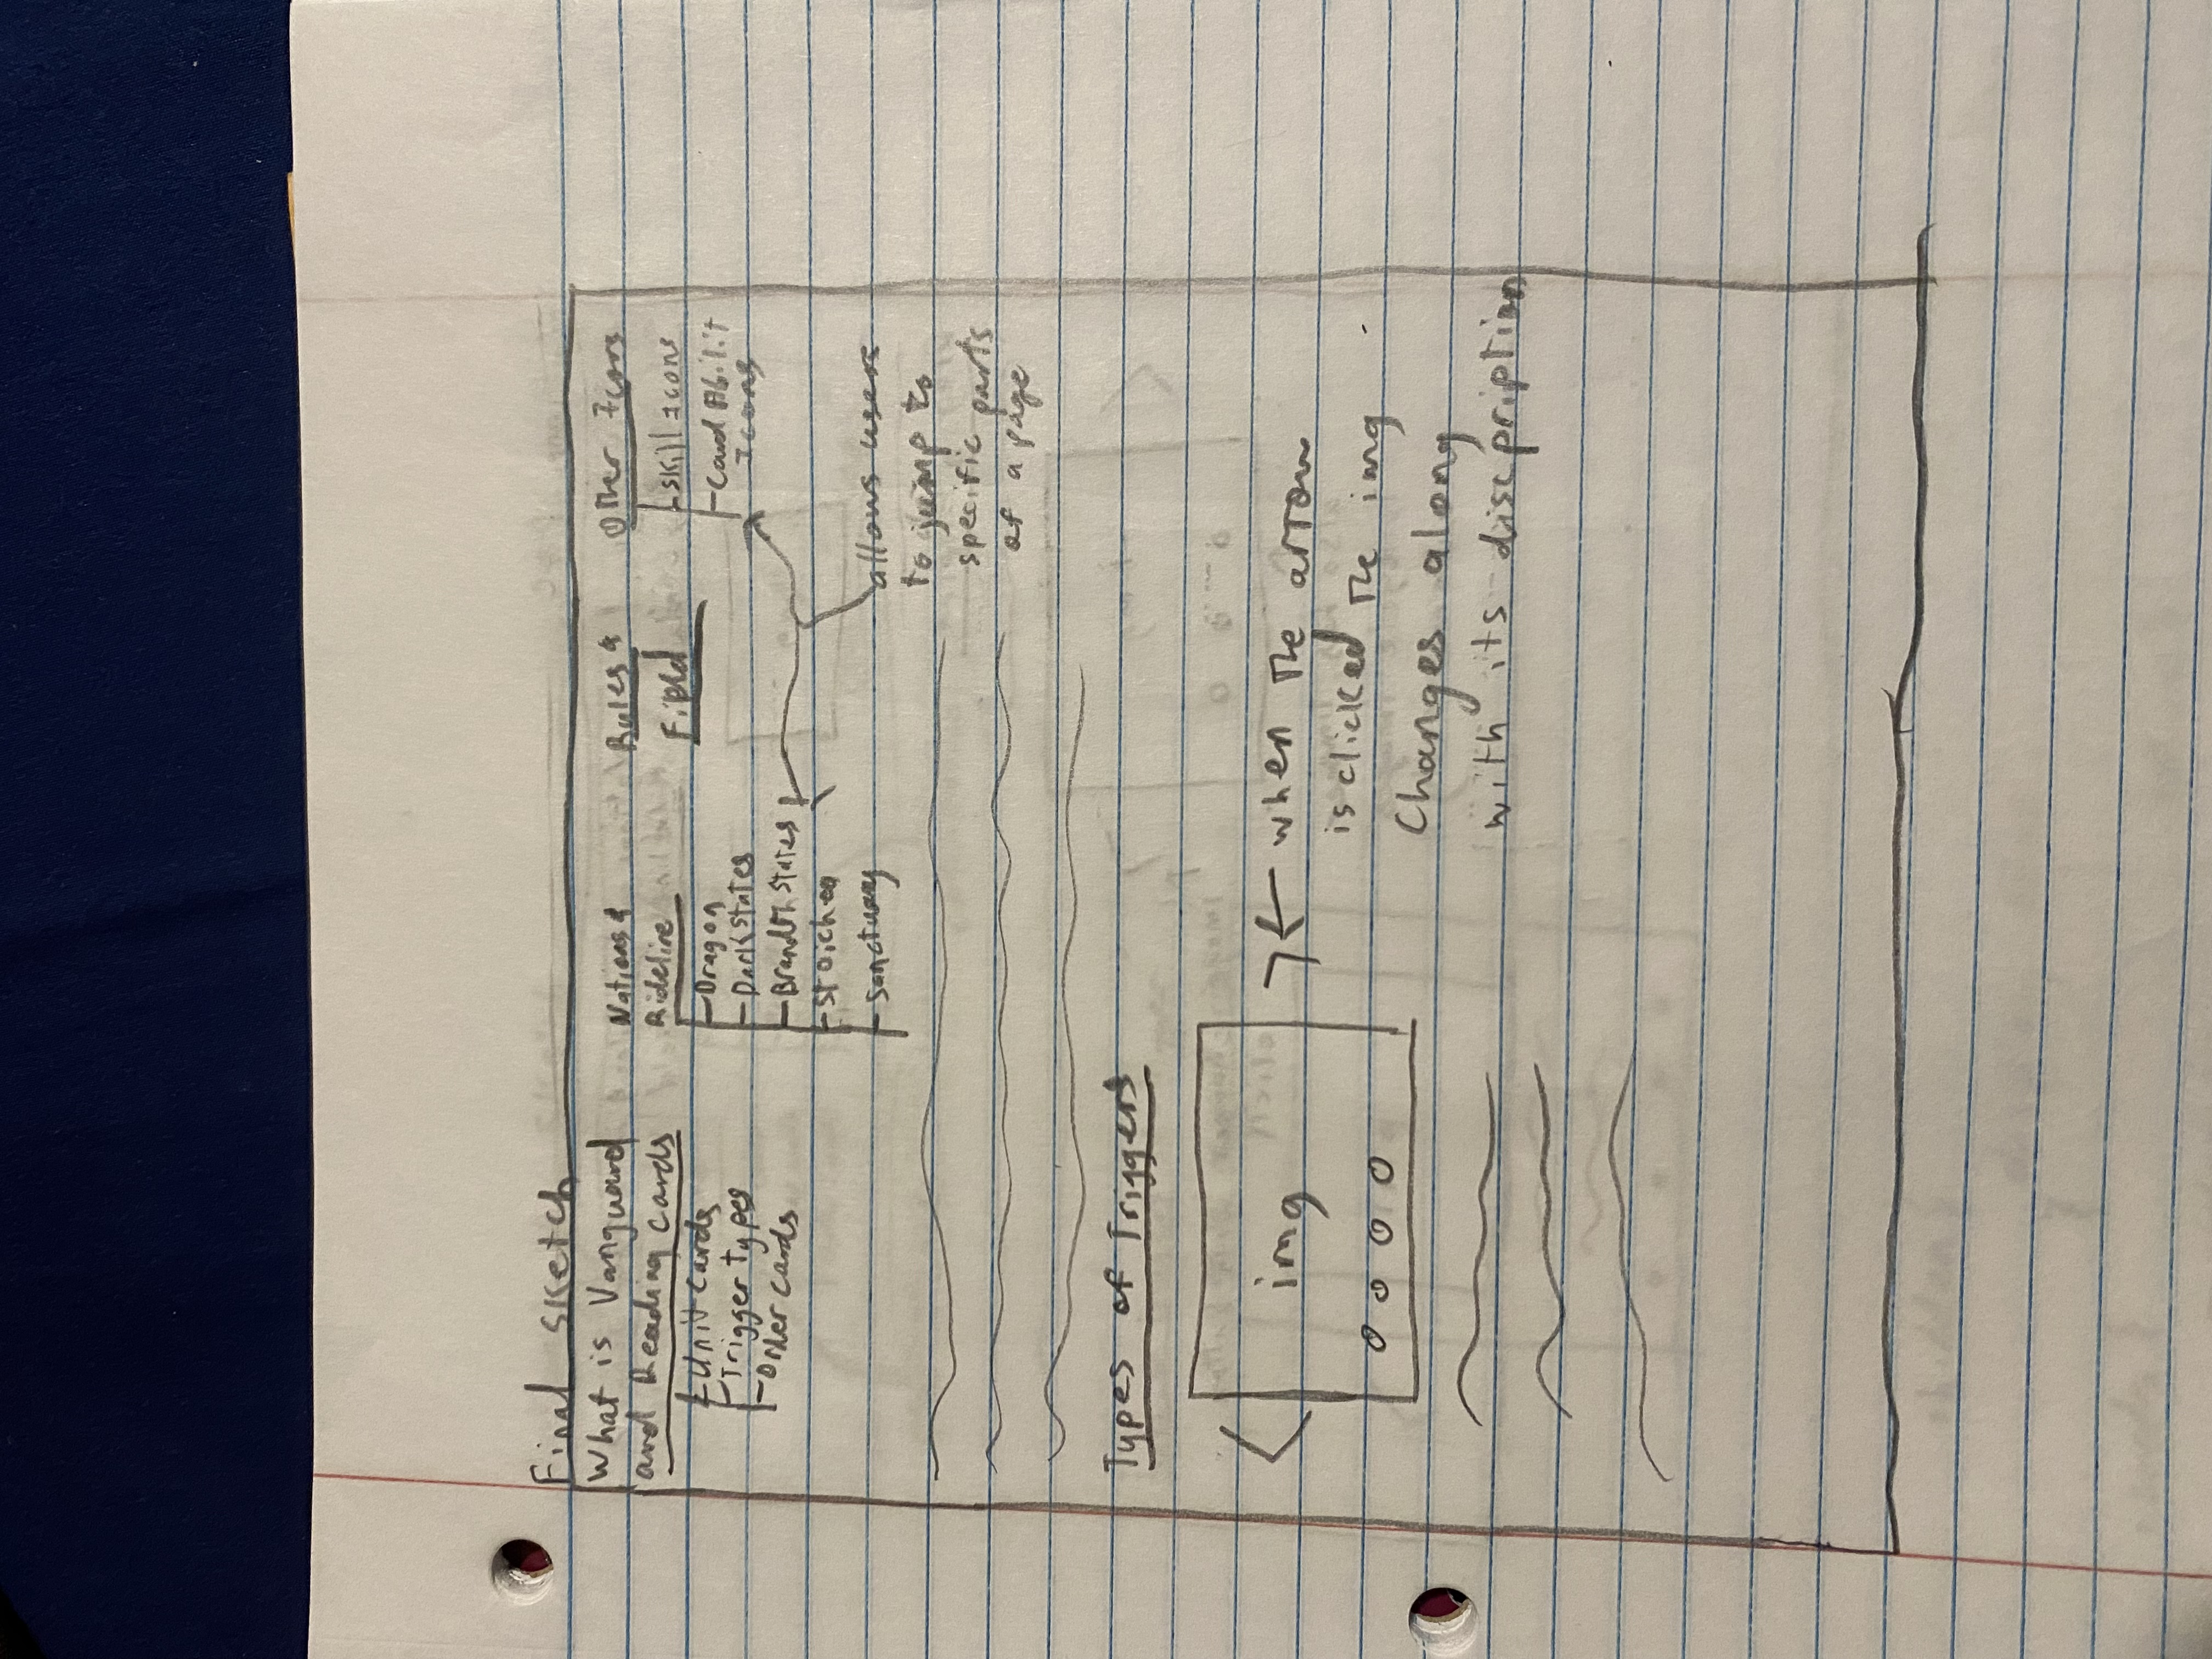 Final Sketch
What is Vanguard
and Reading cards
Unit cards
Trigger types
Order cards
Nations &
Rideline
Dragon
Dark states
Brandth states
Stoichea
Sanctuary
Rules &
Field
Other Icons
skill Icons
Card Abilit
Icons
allows users
to jump to
specific parts
of a page
Types of Triggers
img
when the arrow
is clicked the img
Changes along
with its discpription